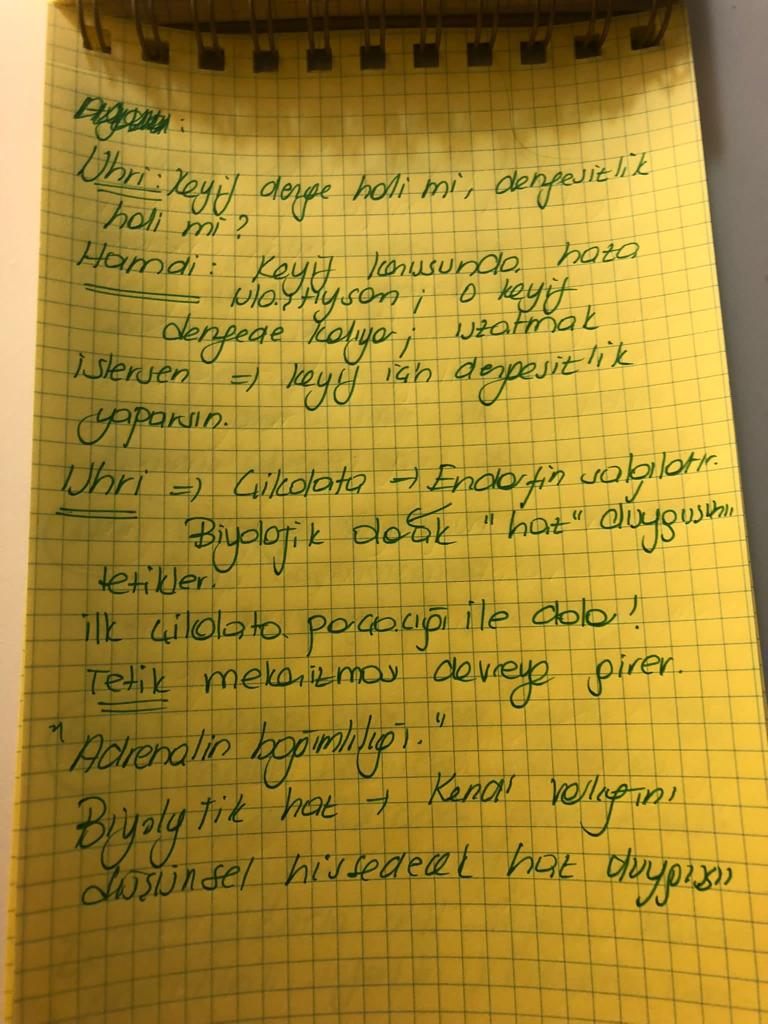 Uhri: Keyif denge hali mi, dengesizlik
hali mi?
Hamdi: Keyif konusunda haza
ulaştıysan; o keyif
dengede kalıyor; uzatmak
istersen => keyif için dengesizlik
yaparsın.
Uhri => Çikolata → Endorfin salgılatır.
Biyolojik olarak "haz" duygusunu
tetikler.
ilk çikolata parçacığı ile daha!
Tetik mekanizması devreye girer.
"Adrenalin bağımlılığı."
haz → Kendi varlığını
düşünsel hissedecek haz duygusu